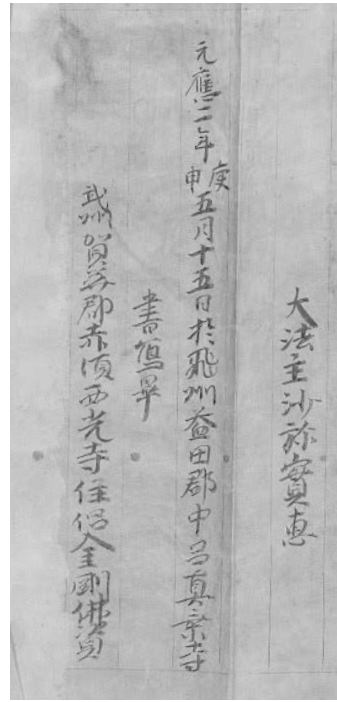 大法主沙弥實恵
元應二年庚申五月十五日於飛州益田郡中呂真乗寺
書寫畢
武州賀美郡赤須西光寺住侶金剛佛資